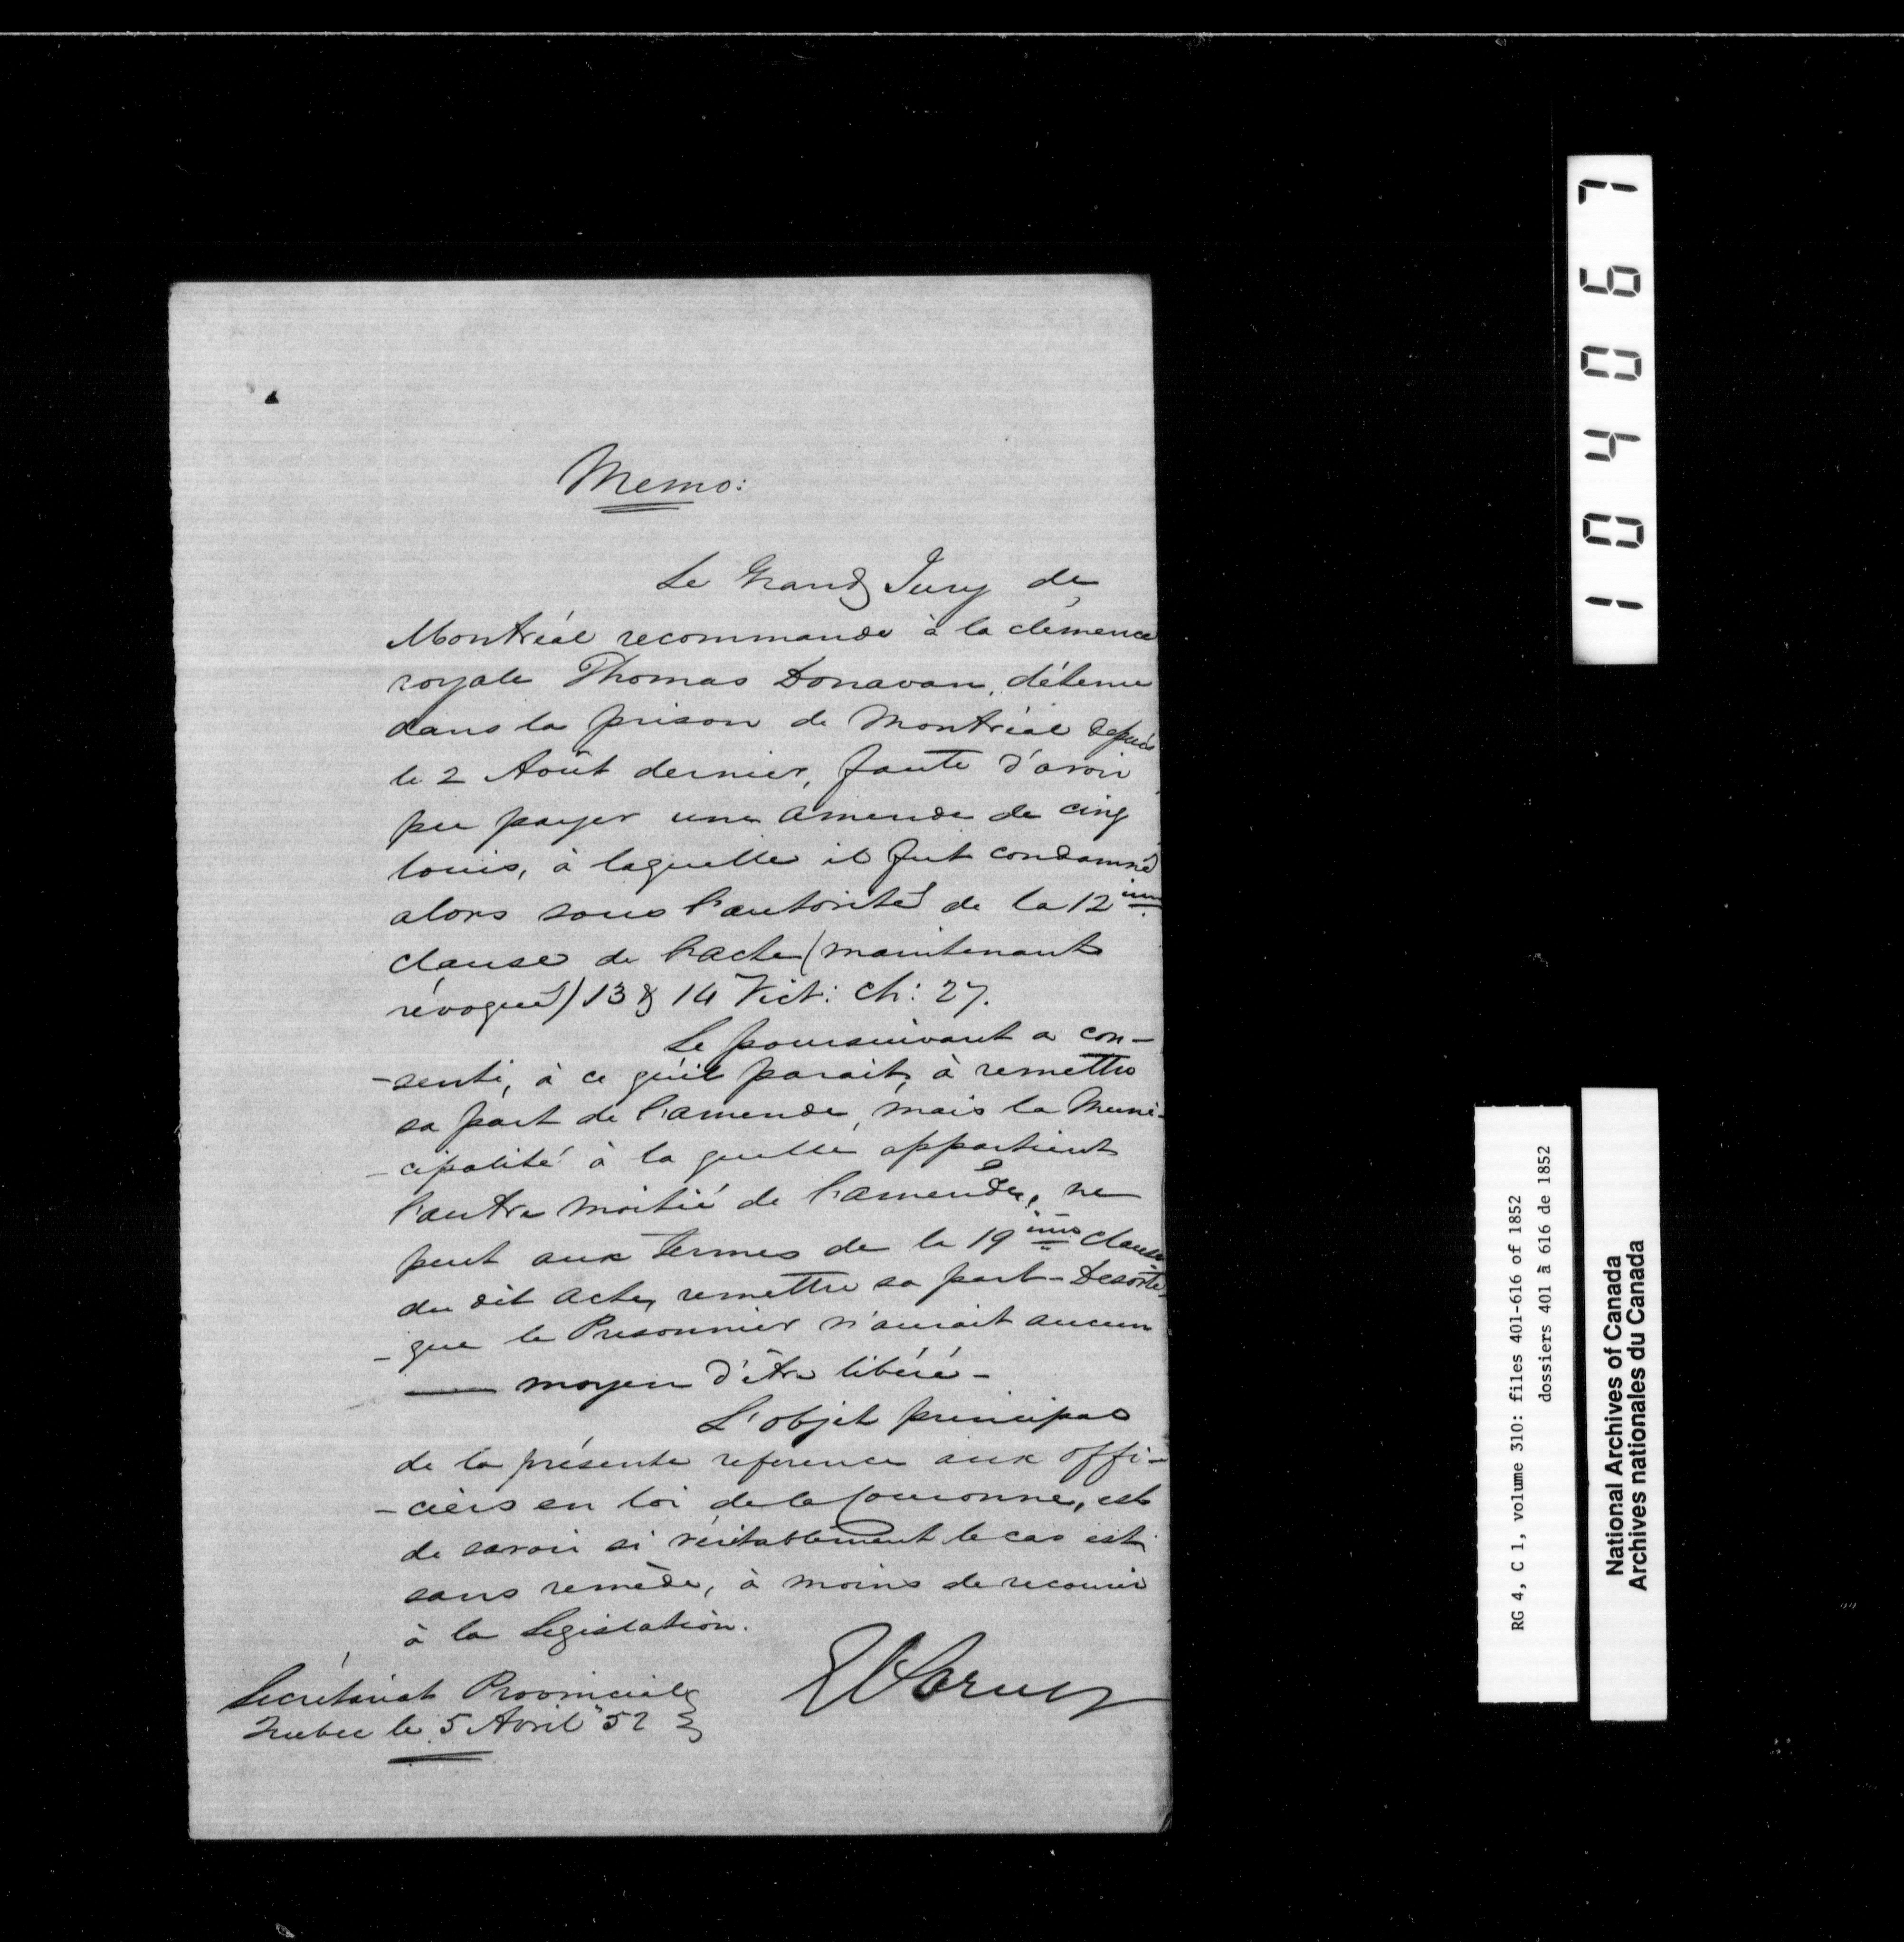 Memo:
Le Grand Jury de
Montréal recommande à la clémence
royale Thomas Donavan, détenu
dans la prison de Montréal depuis
le 2 Août dernier, faute d'avoir
pu payer une amende de cinq
louis, à laquelle il fut condamné
alors sous l'autorité de la 12ème
clause de l'acte (maintenant
révoqué) 13 & 14 Vict: Ch: 27.
Le poursuivant a con-
-senti, à ce qu'il parait, à remettre
sa part de l'amende, mais la Muni-
-cipalité à la quelle appartient
l'autre moitié de l'amende, ne
peut aux termes de la 19ème clause
du dit acte, remettre sa part - De sorte
-que le Prisonnier n'aurait aucun
moyen d'être libéré -
L'objet principal
de la présente reference aux offi-
-ciers en loi de la Couronne, est
de savoir si véritablement le cas est
sans remède, à moins de recourir
à la Législation.
Secrétariat Provincial
Quebec le 5 Avril 52
104067
RG 4, C 1, volume 310: files 401-616 of 1852
dossiers 401 à 616 de 1852
National Archives of Canada
Archives nationales du Canada